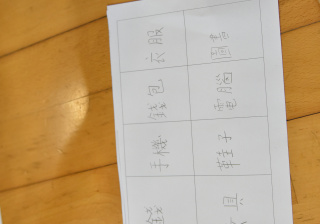 手機 錢包 衣服
具 鞋子 電腦 圖書